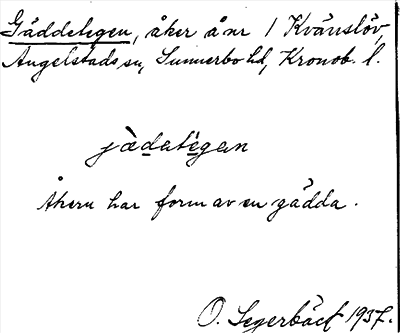 Gäddetegen, åker å nr 1 Kvänslöv,
Angelstads sn, Sunnerbo hd, Kronob. l.
jàdatégan
Åkern har form av en gädda.
O. Segerbäck 1937.